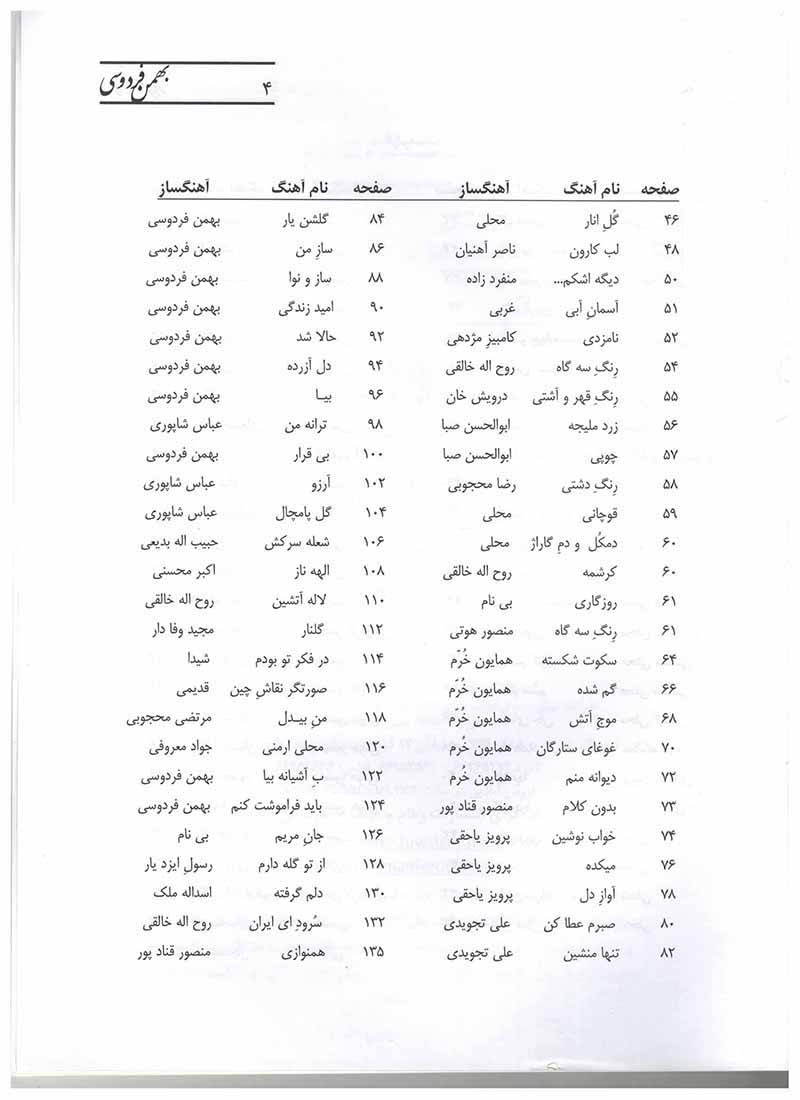 ۴ بهمن فردوسی
صفحه نام آهنگ آهنگساز صفحه نام آهنگ آهنگساز
۴۶ گُلِ انار محلی ۸۴ گلشن یار بهمن فردوسی
۴۸ لب کارون ناصر آهنیان ۸۶ سازِ من بهمن فردوسی
۵۰ دیگه اشکم... منفرد زاده ۸۸ ساز و نوا بهمن فردوسی
۵۱ آسمانِ آبی غربی ۹۰ امید زندگی بهمن فردوسی
۵۲ نامزدی کامبیز مژدهی ۹۲ حالا شد بهمن فردوسی
۵۴ رِنگِ سه گاه روح اله خالقی ۹۴ دل آزرده بهمن فردوسی
۵۵ رِنگِ قهر و آشتی درویش خان ۹۶ بیـا بهمن فردوسی
۵۶ زرد ملیجه ابوالحسن صبا ۹۸ ترانه من عباس شاپوری
۵۷ چوپی ابوالحسن صبا ۱۰۰ بی قرار بهمن فردوسی
۵۸ رِنگِ دشتی رضا محجوبی ۱۰۲ آرزو عباس شاپوری
۵۹ قوچانی محلی ۱۰۴ گل پامچال عباس شاپوری
۶۰ دمکُل و دمِ گاراژ محلی ۱۰۶ شعله سرکش حبیب اله بدیعی
۶۰ کرشمه روح اله خالقی ۱۰۸ الهه ناز اکبر محسنی
۶۱ روزگاری بی نام ۱۱۰ لاله آتشین روح اله خالقی
۶۱ رِنگِ سه گاه منصور هوتی ۱۱۲ گلنار مجید وفا دار
۶۴ سکوت شکسته همایون خُرّم ۱۱۴ در فکر تو بودم شیدا
۶۶ گم شده همایون خُرّم ۱۱۶ صورتگر نقاشِ چین قدیمی
۶۸ موج آتش همایون خُرّم ۱۱۸ منِ بیـدل مرتضی محجوبی
۷۰ غوغای ستارگان همایون خُرم ۱۲۰ محلی ارمنی جواد معروفی
۷۲ دیوانه منم همایون خُرم ۱۲۲ بِ آشیانه بیا بهمن فردوسی
۷۳ بدون کلام منصور قناد پور ۱۲۴ باید فراموشت کنم بهمن فردوسی
۷۴ خواب نوشین پرویز یاحقی ۱۲۶ جانِ مریم بی نام
۷۶ میکده پرویز یاحقی ۱۲۸ از تو گله دارم رسولِ ایزد یار
۷۸ آوازِ دل پرویز یاحقی ۱۳۰ دلم گرفته اسداله ملک
۸۰ صبرم عطا کن علی تجویدی ۱۳۲ سُرودِ ای ایران روح اله خالقی
۸۲ تنها منشین علی تجویدی ۱۳۵ همنوازی منصور قناد پور